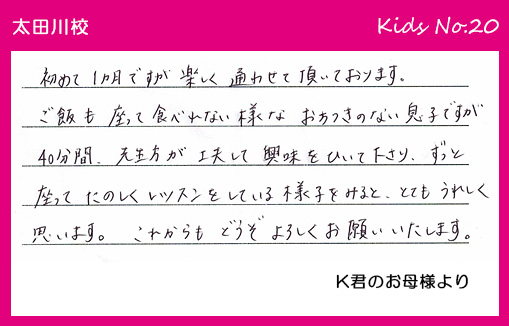 太田川校
Kids No.20
初めて1カ月ですが楽しく通わせて頂いております。
ご飯も座って食べれない様なおちつきのない息子ですが
40分間、先生方が工夫して興味をひいて下さり、ずっと
座ってたのしくレッスンをしている様子をみると、とてもうれしく
思います。これからもどうぞよろしくお願いいたします。
K君のお母様より